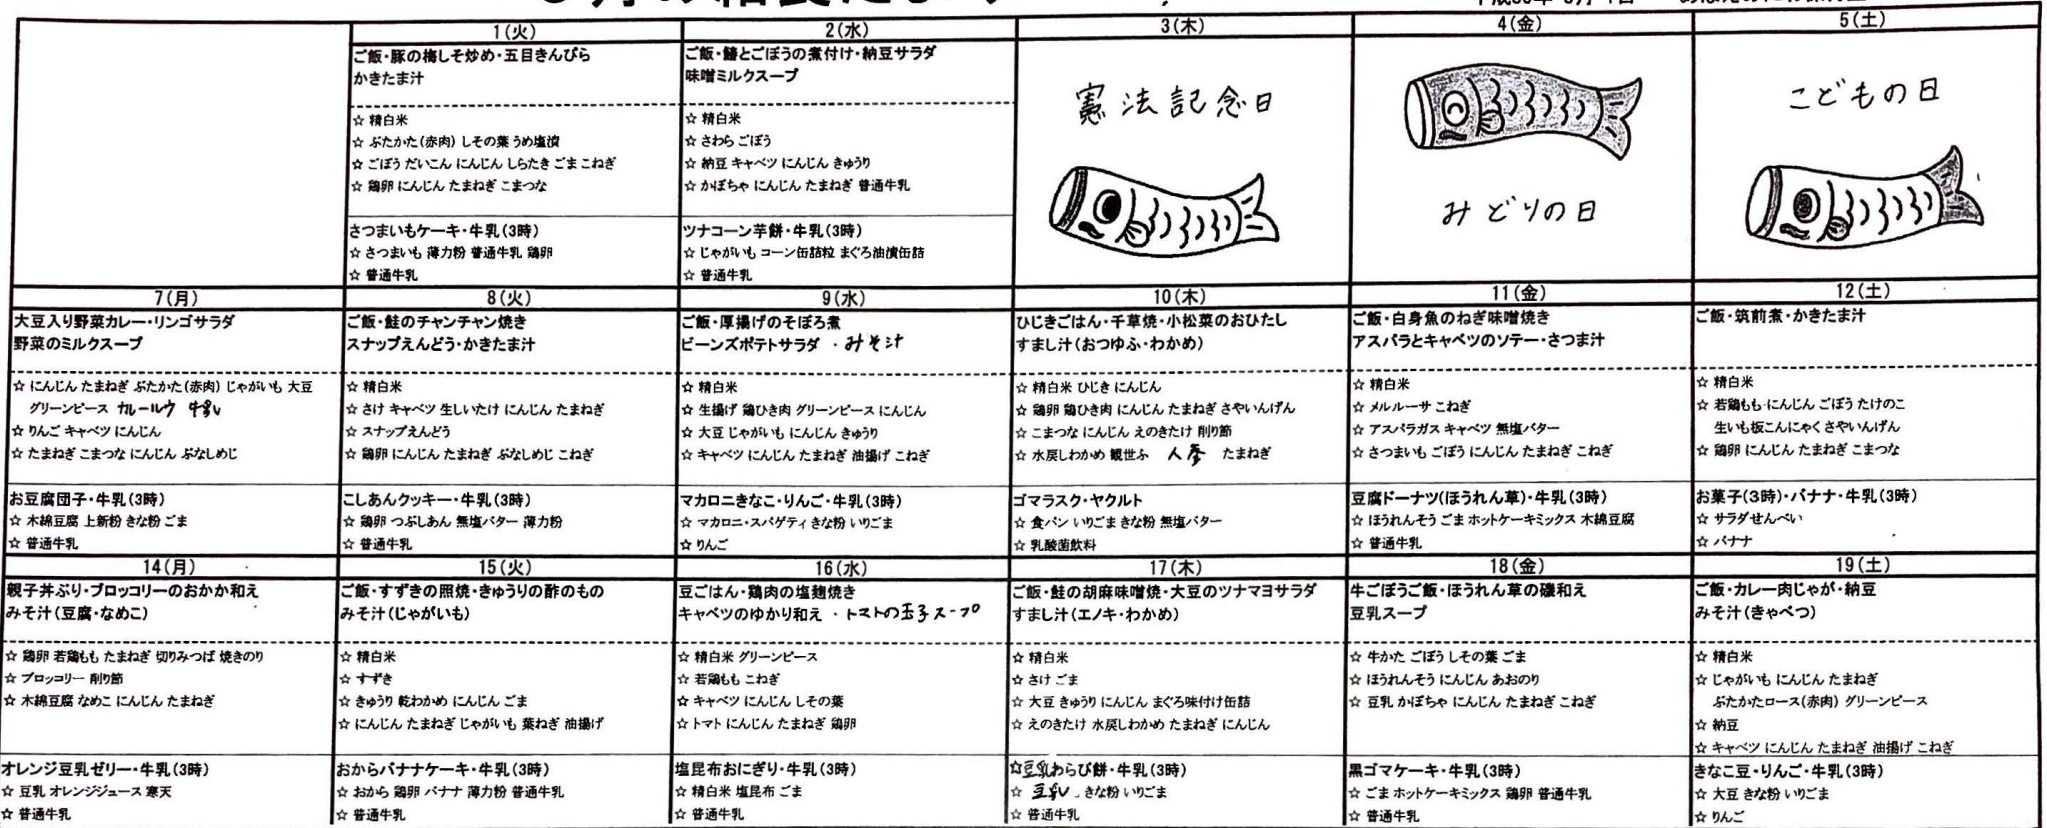 1(火)
2(水)
3(木)
4(金)
5(土)
ご飯・豚の梅しそ炒め・五目きんぴら
かきたま汁
☆ 精白米
☆ ぶたかた(赤肉) しその葉 うめ塩漬
☆ ごぼう だいこん にんじん しらたき ごま こねぎ
☆ 鶏卵 にんじん たまねぎ こまつな
さつまいもケーキ・牛乳(3時)
☆ さつまいも 薄力粉 普通牛乳 鶏卵
☆ 普通牛乳
ご飯・鰆とごぼうの煮付け・納豆サラダ
味噌ミルクスープ
☆ 精白米
☆ さわら ごぼう
☆ 納豆 キャベツ にんじん きゅうり
☆ かぼちゃ にんじん たまねぎ 普通牛乳
ツナコーン芋餅・牛乳(3時)
☆ じゃがいも コーン缶詰粒 まぐろ油漬缶詰
☆ 普通牛乳
憲法記念日
みどりの日
こどもの日
7(月)
8(火)
9(水)
10(木)
11(金)
12(土)
大豆入り野菜カレー・リンゴサラダ
野菜のミルクスープ
☆ にんじん たまねぎ ぶたかた(赤肉) じゃがいも 大豆
グリーンピース カレールウ 牛乳
☆ りんご キャベツ にんじん
☆ たまねぎ こまつな にんじん ぶなしめじ
お豆腐団子・牛乳(3時)
☆ 木綿豆腐 上新粉 きな粉 ごま
☆ 普通牛乳
ご飯・鮭のチャンチャン焼き
スナップえんどう・かきたま汁
☆ 精白米
☆ さけ キャベツ 生しいたけ にんじん たまねぎ
☆ スナップえんどう
☆ 鶏卵 にんじん たまねぎ ぶなしめじ こねぎ
こしあんクッキー・牛乳(3時)
☆ 鶏卵 つぶしあん 無塩バター 薄力粉
☆ 普通牛乳
ご飯・厚揚げのそぼろ煮
ビーンズポテトサラダ ・みそ汁
☆ 精白米
☆ 生揚げ 鶏ひき肉 グリーンピース にんじん
☆ 大豆 じゃがいも にんじん きゅうり
☆ キャベツ にんじん たまねぎ 油揚げ こねぎ
マカロニきなこ・りんご・牛乳(3時)
☆ マカロニ・スパゲティ きな粉 いりごま
☆ りんご
ひじきごはん・千草焼・小松菜のおひたし
すまし汁(おつゆふ・わかめ)
☆ 精白米 ひじき にんじん
☆ 鶏卵 鶏ひき肉 にんじん たまねぎ さやいんげん
☆ こまつな にんじん えのきたけ 削り節
☆ 水戻しわかめ 観世ふ 人参 たまねぎ
ゴマラスク・ヤクルト
☆ 食パン いりごま きな粉 無塩バター
☆ 乳酸菌飲料
ご飯・白身魚のねぎ味噌焼き
アスパラとキャベツのソテー・さつま汁
☆ 精白米
☆ メルルーサ こねぎ
☆ アスパラガス キャベツ 無塩バター
☆ さつまいも ごぼう にんじん たまねぎ こねぎ
豆腐ドーナツ(ほうれん草)・牛乳(3時)
☆ ほうれんそう ごま ホットケーキミックス 木綿豆腐
☆ 普通牛乳
ご飯・筑前煮・かきたま汁
☆ 精白米
☆ 若鶏もも にんじん ごぼう たけのこ
生いも板こんにゃく さやいんげん
☆ 鶏卵 にんじん たまねぎ こまつな
お菓子(3時)・バナナ・牛乳(3時)
☆ サラダせんべい
☆ バナナ
14(月)
15(火)
16(水)
17(木)
18(金)
19(土)
親子丼ぶり・ブロッコリーのおかか和え
みそ汁(豆腐・なめこ)
☆ 鶏卵 若鶏もも たまねぎ 切りみつば 焼きのり
☆ ブロッコリー 削り節
☆ 木綿豆腐 なめこ にんじん たまねぎ
オレンジ豆乳ゼリー・牛乳(3時)
☆ 豆乳 オレンジジュース 寒天
☆ 普通牛乳
ご飯・すずきの照焼・きゅうりの酢のもの
みそ汁(じゃがいも)
☆ 精白米
☆ すずき
☆ きゅうり 乾わかめ にんじん ごま
☆ にんじん たまねぎ じゃがいも 葉ねぎ 油揚げ
おからバナナケーキ・牛乳(3時)
☆ おから 鶏卵 バナナ 薄力粉 普通牛乳
☆ 普通牛乳
豆ごはん・鶏肉の塩麹焼き
キャベツのゆかり和え ・トマトの玉子スープ
☆ 精白米 グリーンピース
☆ 若鶏もも こねぎ
☆ キャベツ にんじん しその葉
☆ トマト にんじん たまねぎ 鶏卵
塩昆布おにぎり・牛乳(3時)
☆ 精白米 塩昆布 ごま
☆ 普通牛乳
ご飯・鮭の胡麻味噌焼・大豆のツナマヨサラダ
すまし汁(エノキ・わかめ)
☆ 精白米
☆ さけ ごま
☆ 大豆 きゅうり にんじん まぐろ味付け缶詰
☆ えのきたけ 水戻しわかめ たまねぎ にんじん
☆豆乳わらび餅・牛乳(3時)
☆ 豆乳 きな粉 いりごま
☆ 普通牛乳
牛ごぼうご飯・ほうれん草の磯和え
豆乳スープ
☆ 牛かた ごぼう しその葉 ごま
☆ ほうれんそう にんじん あおのり
☆ 豆乳 かぼちゃ にんじん たまねぎ こねぎ
黒ゴマケーキ・牛乳(3時)
☆ ごま ホットケーキミックス 鶏卵 普通牛乳
☆ 普通牛乳
ご飯・カレー肉じゃが・納豆
みそ汁(きゃべつ)
☆ 精白米
☆ じゃがいも にんじん たまねぎ
ぶたかたロース(赤肉) グリーンピース
☆ 納豆
☆ キャベツ にんじん たまねぎ 油揚げ こねぎ
きなこ豆・りんご・牛乳(3時)
☆ 大豆 きな粉 いりごま
☆ りんご